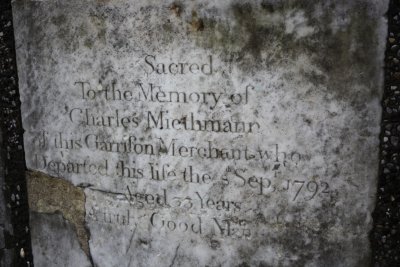 Sacred
To the Memory of
Charles Miethmann
of this Garrison Merchant who
Departed this life the 5 Sep. 1792
Aged 33 Years
A truly Good Man